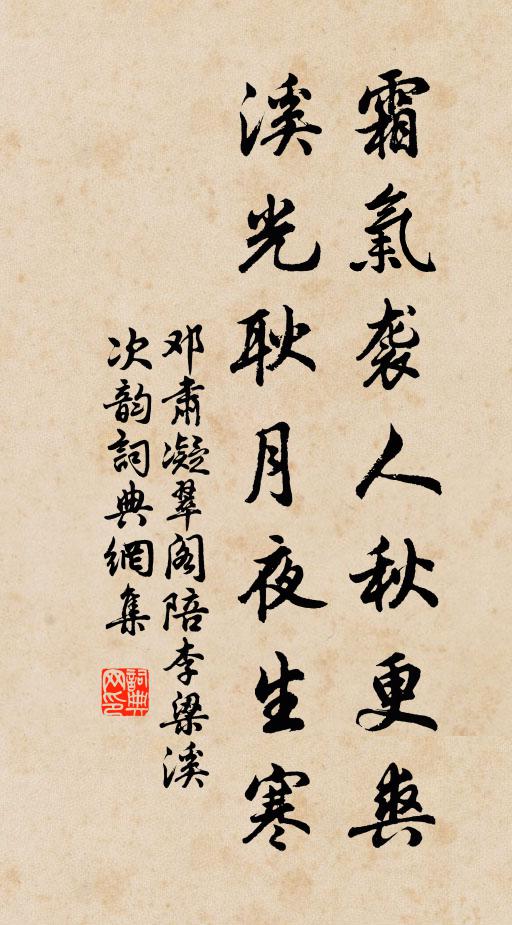 霜氣襲人秋更爽
溪光耿月夜生寒
邓肅凝翠阁陪李梁溪
次韵詞典網集
詞典
网印